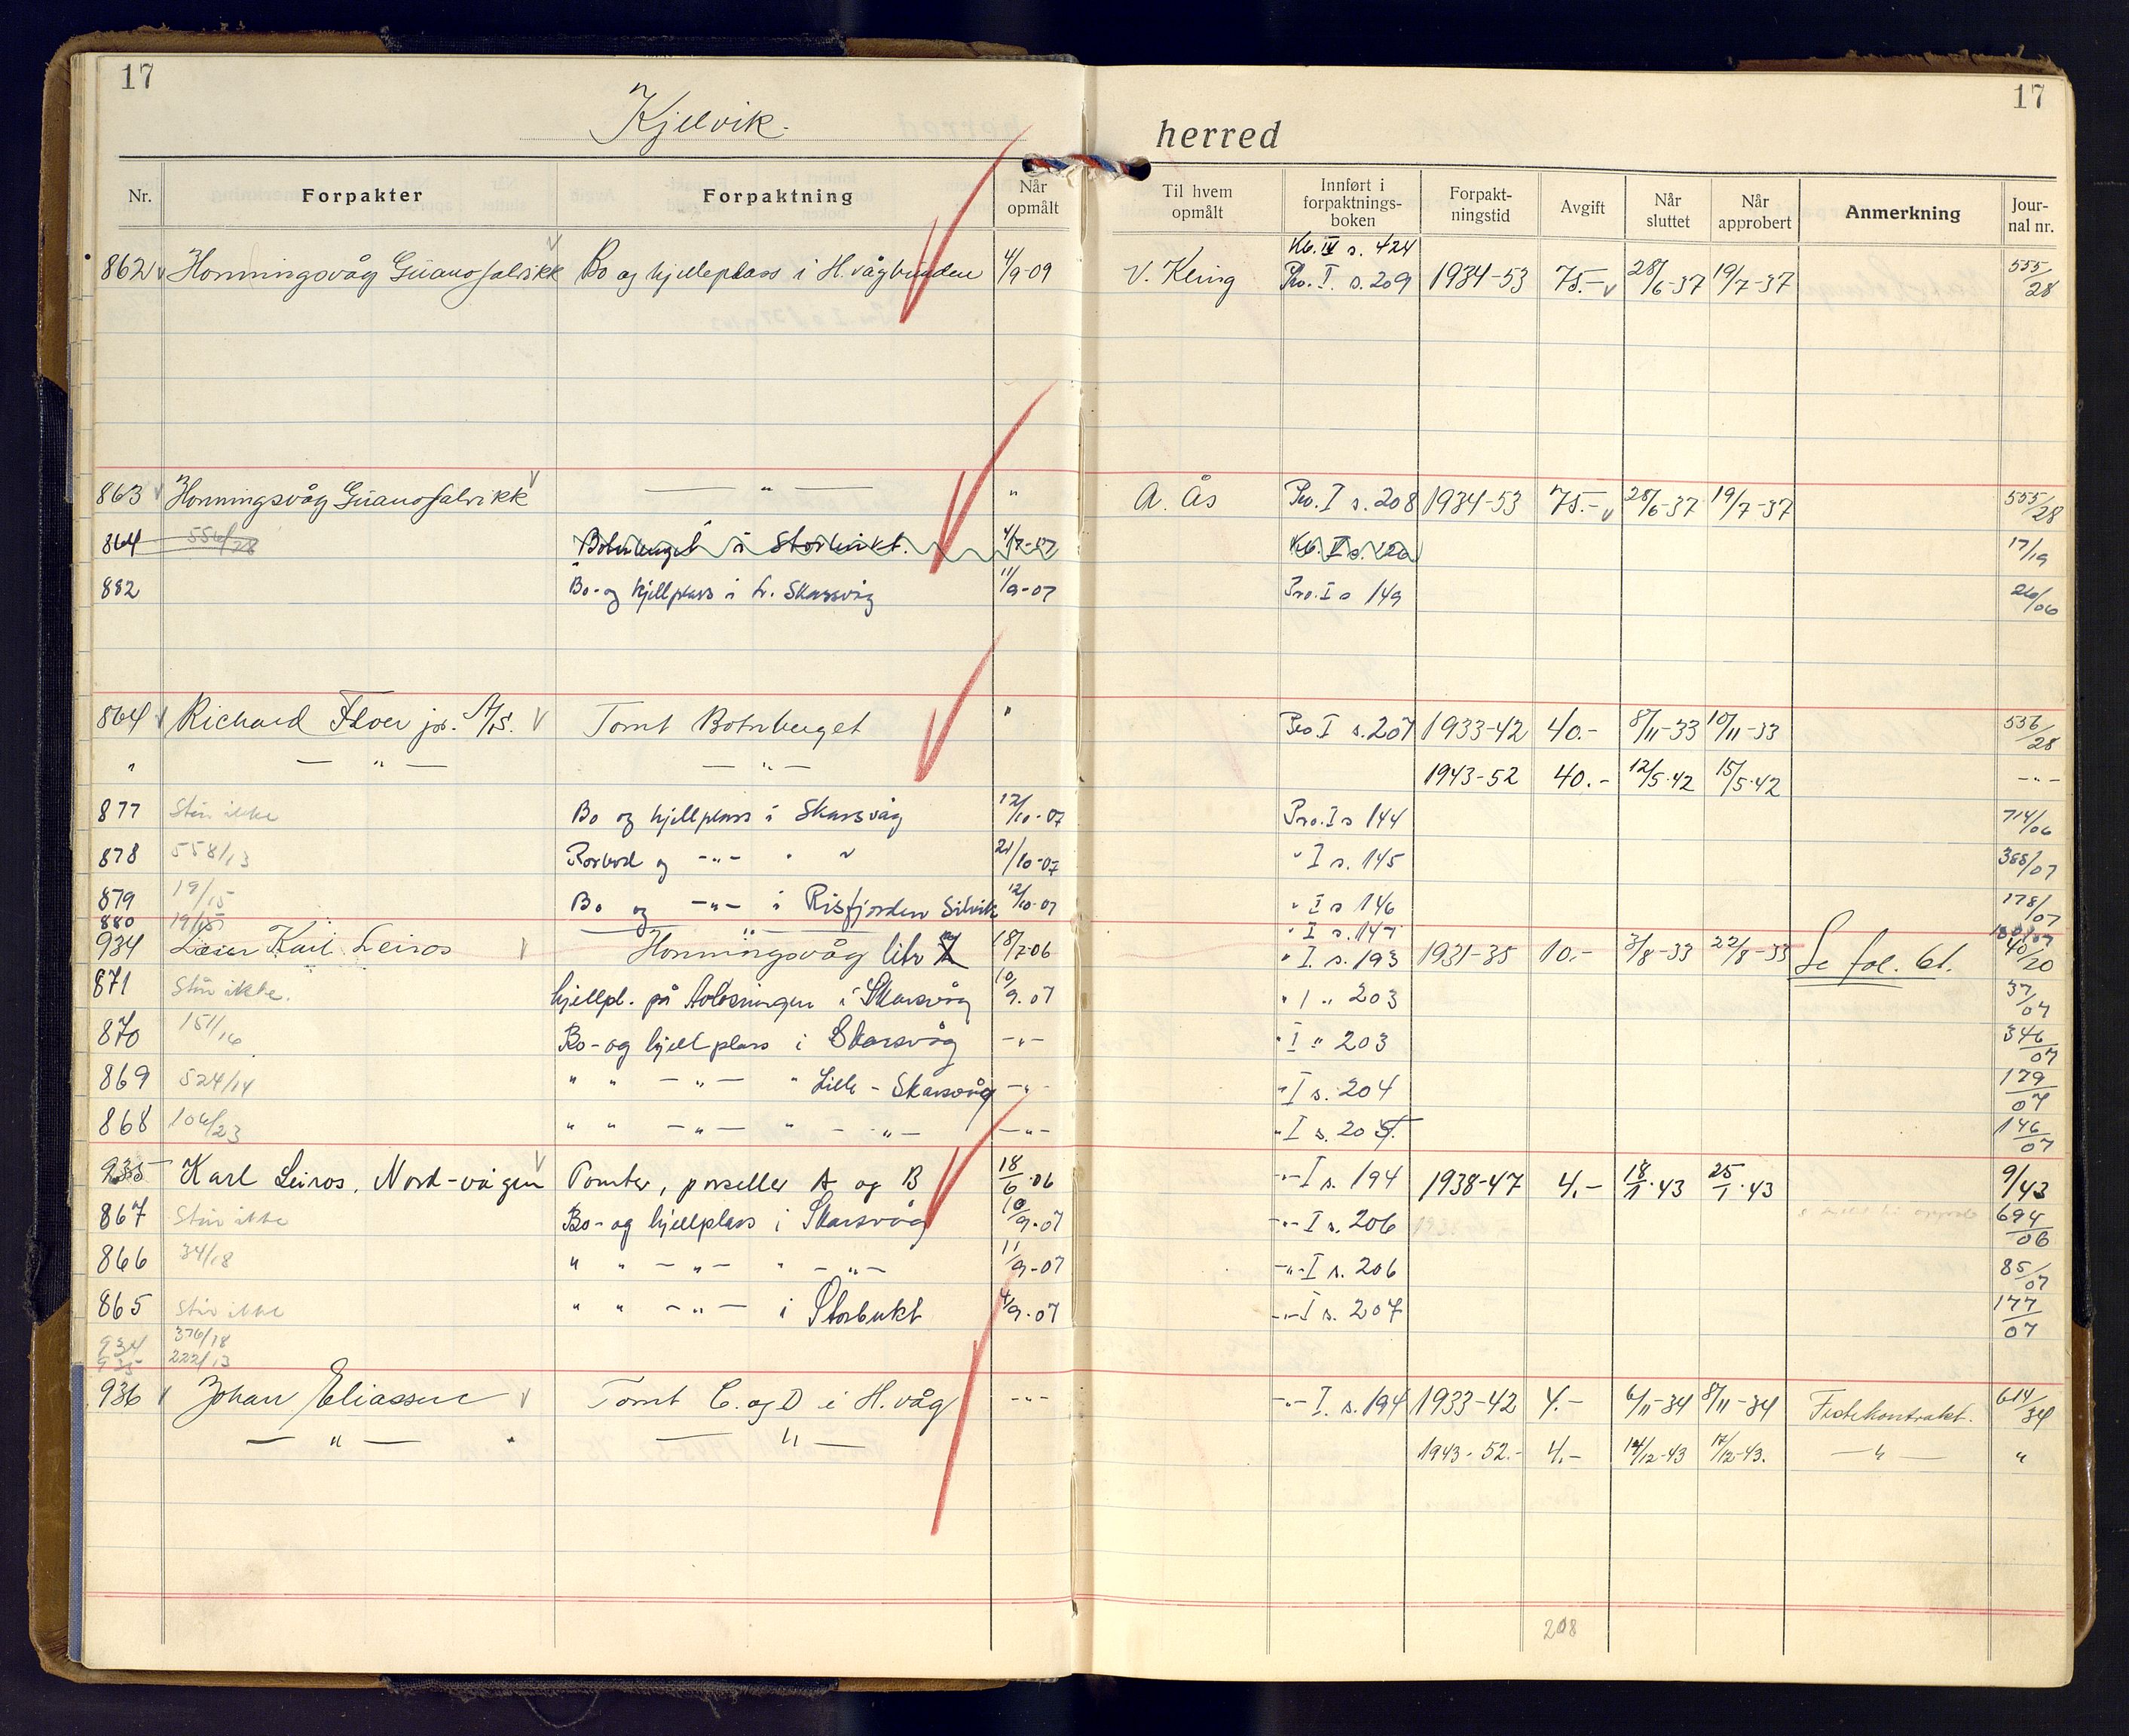 17
17
Kjelvik herred
Nr. Forpakter Forpaktning Når opmålt Til hvem opmålt Innført i forpaktnings-boken Forpakt-ningstid Avgift Når sluttet Når approbert Anmerkning Jour-nal nr.
Kb. IV s. 424
862 v Honningsvåg Guanofabrikk v Bo og hjelleplass i H.vågbunden 4/9-09 V. Kling Pro. I. s. 209 1934-53 75.- v 28/6-37 19/7-37 555/28
863 v Honningsvåg Guanofabrikk v — " — " A. Ås Pro. I s. 208 1934-53 75.- v 28/6-37 19/7-37 555/28
864 556/28 Botnberget i Storbukt. 17/19
882 Bo- og hjellplass i L. Skarsvåg 11/9-07 Pro. I s 149 26/06
864 v Richard Floer jr. A/S. v Tomt Botnberget " Pro I s. 207 1933-42 40.- 8/11-33 10/11-33 556/28
" — " — — " — 1943-52 40.- 12/5-42 15/5-42 -"-
877 Står ikke Bo og hjellplass i Skarsvåg 12/10-07 Pro. I s 144 714/06
878 558/13 Rorbod og -"- " " 21/10-07 " I s. 145 368/07
879 19/15 Bo og -"- i Risfjorden Silvik 12/10-07 " I s 146 178/07
880 19/15 " " I s. 147
934 Karl Leiros v Honningsvåg litr 18/7-06 " I. s. 193 1931-35 10.- 3/8-33 22/8-33 Se fol. 61. 40/20
871 Står ikke. hjellpl. på i Skarsvåg 10/9-07 " I " 203 37/07
870 151/16 Bo- og hjellplass i Skarsvåg -"- " I " 203 346/07
869 524/14 " " -"- " Lille-Skarsvåg -"- " I s. 204 179/07
868 106/23 " " -"- " -"- -"- " I s. 205. 146/07
935 Karl Leiros, Nord-vågen v Tomter, parseller A og B 18/6-06 -"- I s. 194 1938-47 4.- 18/1-43 25/1-43 9/43
867 Står ikke Bo- og hjellplass i Skarsvåg 10/9-07 -"- I s. 206 694/06
866 34/18 " " -"- " -"- 11/9-07 -"- I s. 206 85/07
865 Står ikke " " -"- i Storbukt 4/9-07 -"- I s. 207 177/07
934 376/18
935 222/13
936 v Johan Eliassen v Tomt C. og D i H. våg -"- -"- I. s. 194 1933-42 4.- 6/11-34 8/11-34 Festekontrakt. 614/34
— " — — " — 1943-52.- 4.- 14/12-43 17/12-43. — " — "
208